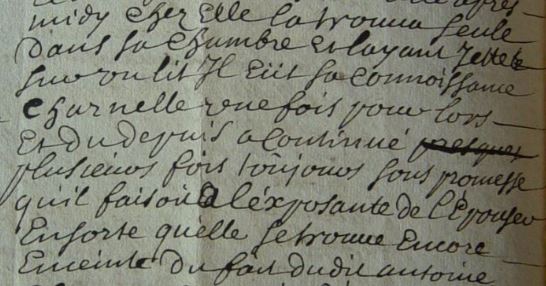 midy chez Elle la trouva seule
dans sa chambre Et layant Jettée
sur un lit Il Eüt sa connoissance
charnelle une fois pour lors
Et du depuis a continué presques
plusieurs fois toûjours sous promesse
qu'il faisoit a l'éxposante de l'Epouser
Ensorte qu'elle se trouve Encore
Enceinte du fait dudit antoine